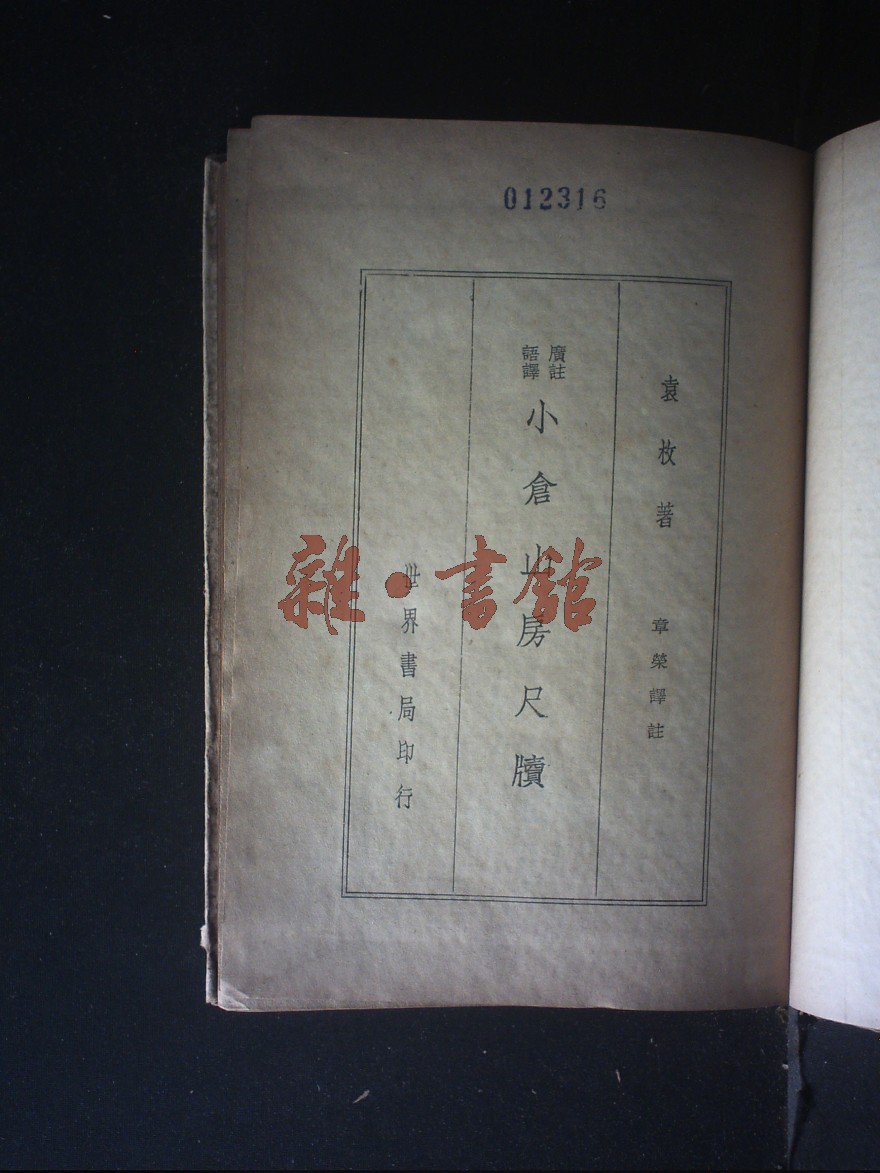 012316
袁枚著 章榮譯註
廣註
語譯
小倉山房尺牘
世界書局印行
雜·書館